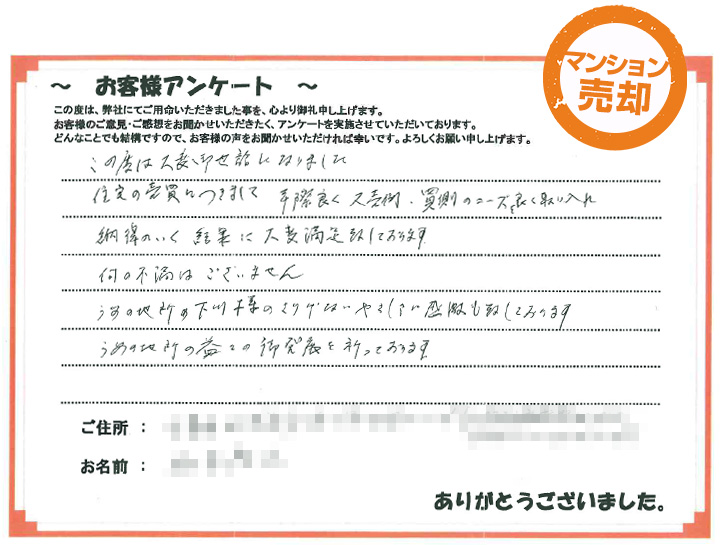 マンション
売却
～ お客様アンケート ～
この度は、弊社にてご用命いただきました事を、心より御礼申し上げます。
お客様のご意見・ご感想をお聞かせいただきたく、アンケートを実施させていただいております。
どんなことでも結構ですので、お客様の声をお聞かせいただければ幸いです。よろしくお願い申し上げます。
この度は大変御世話になりました
住宅の売買につきまして 手際良く 又売側・買側のニーズを良く取り入れ
納得のいく 結果に 大変満足致しております
何の不満はございません
うめの地所の下川様のさりげないやさしさに感服も致しております
うめの地所の益々の御発展を祈っております
ご住所 ：
お名前 ：
ありがとうございました。